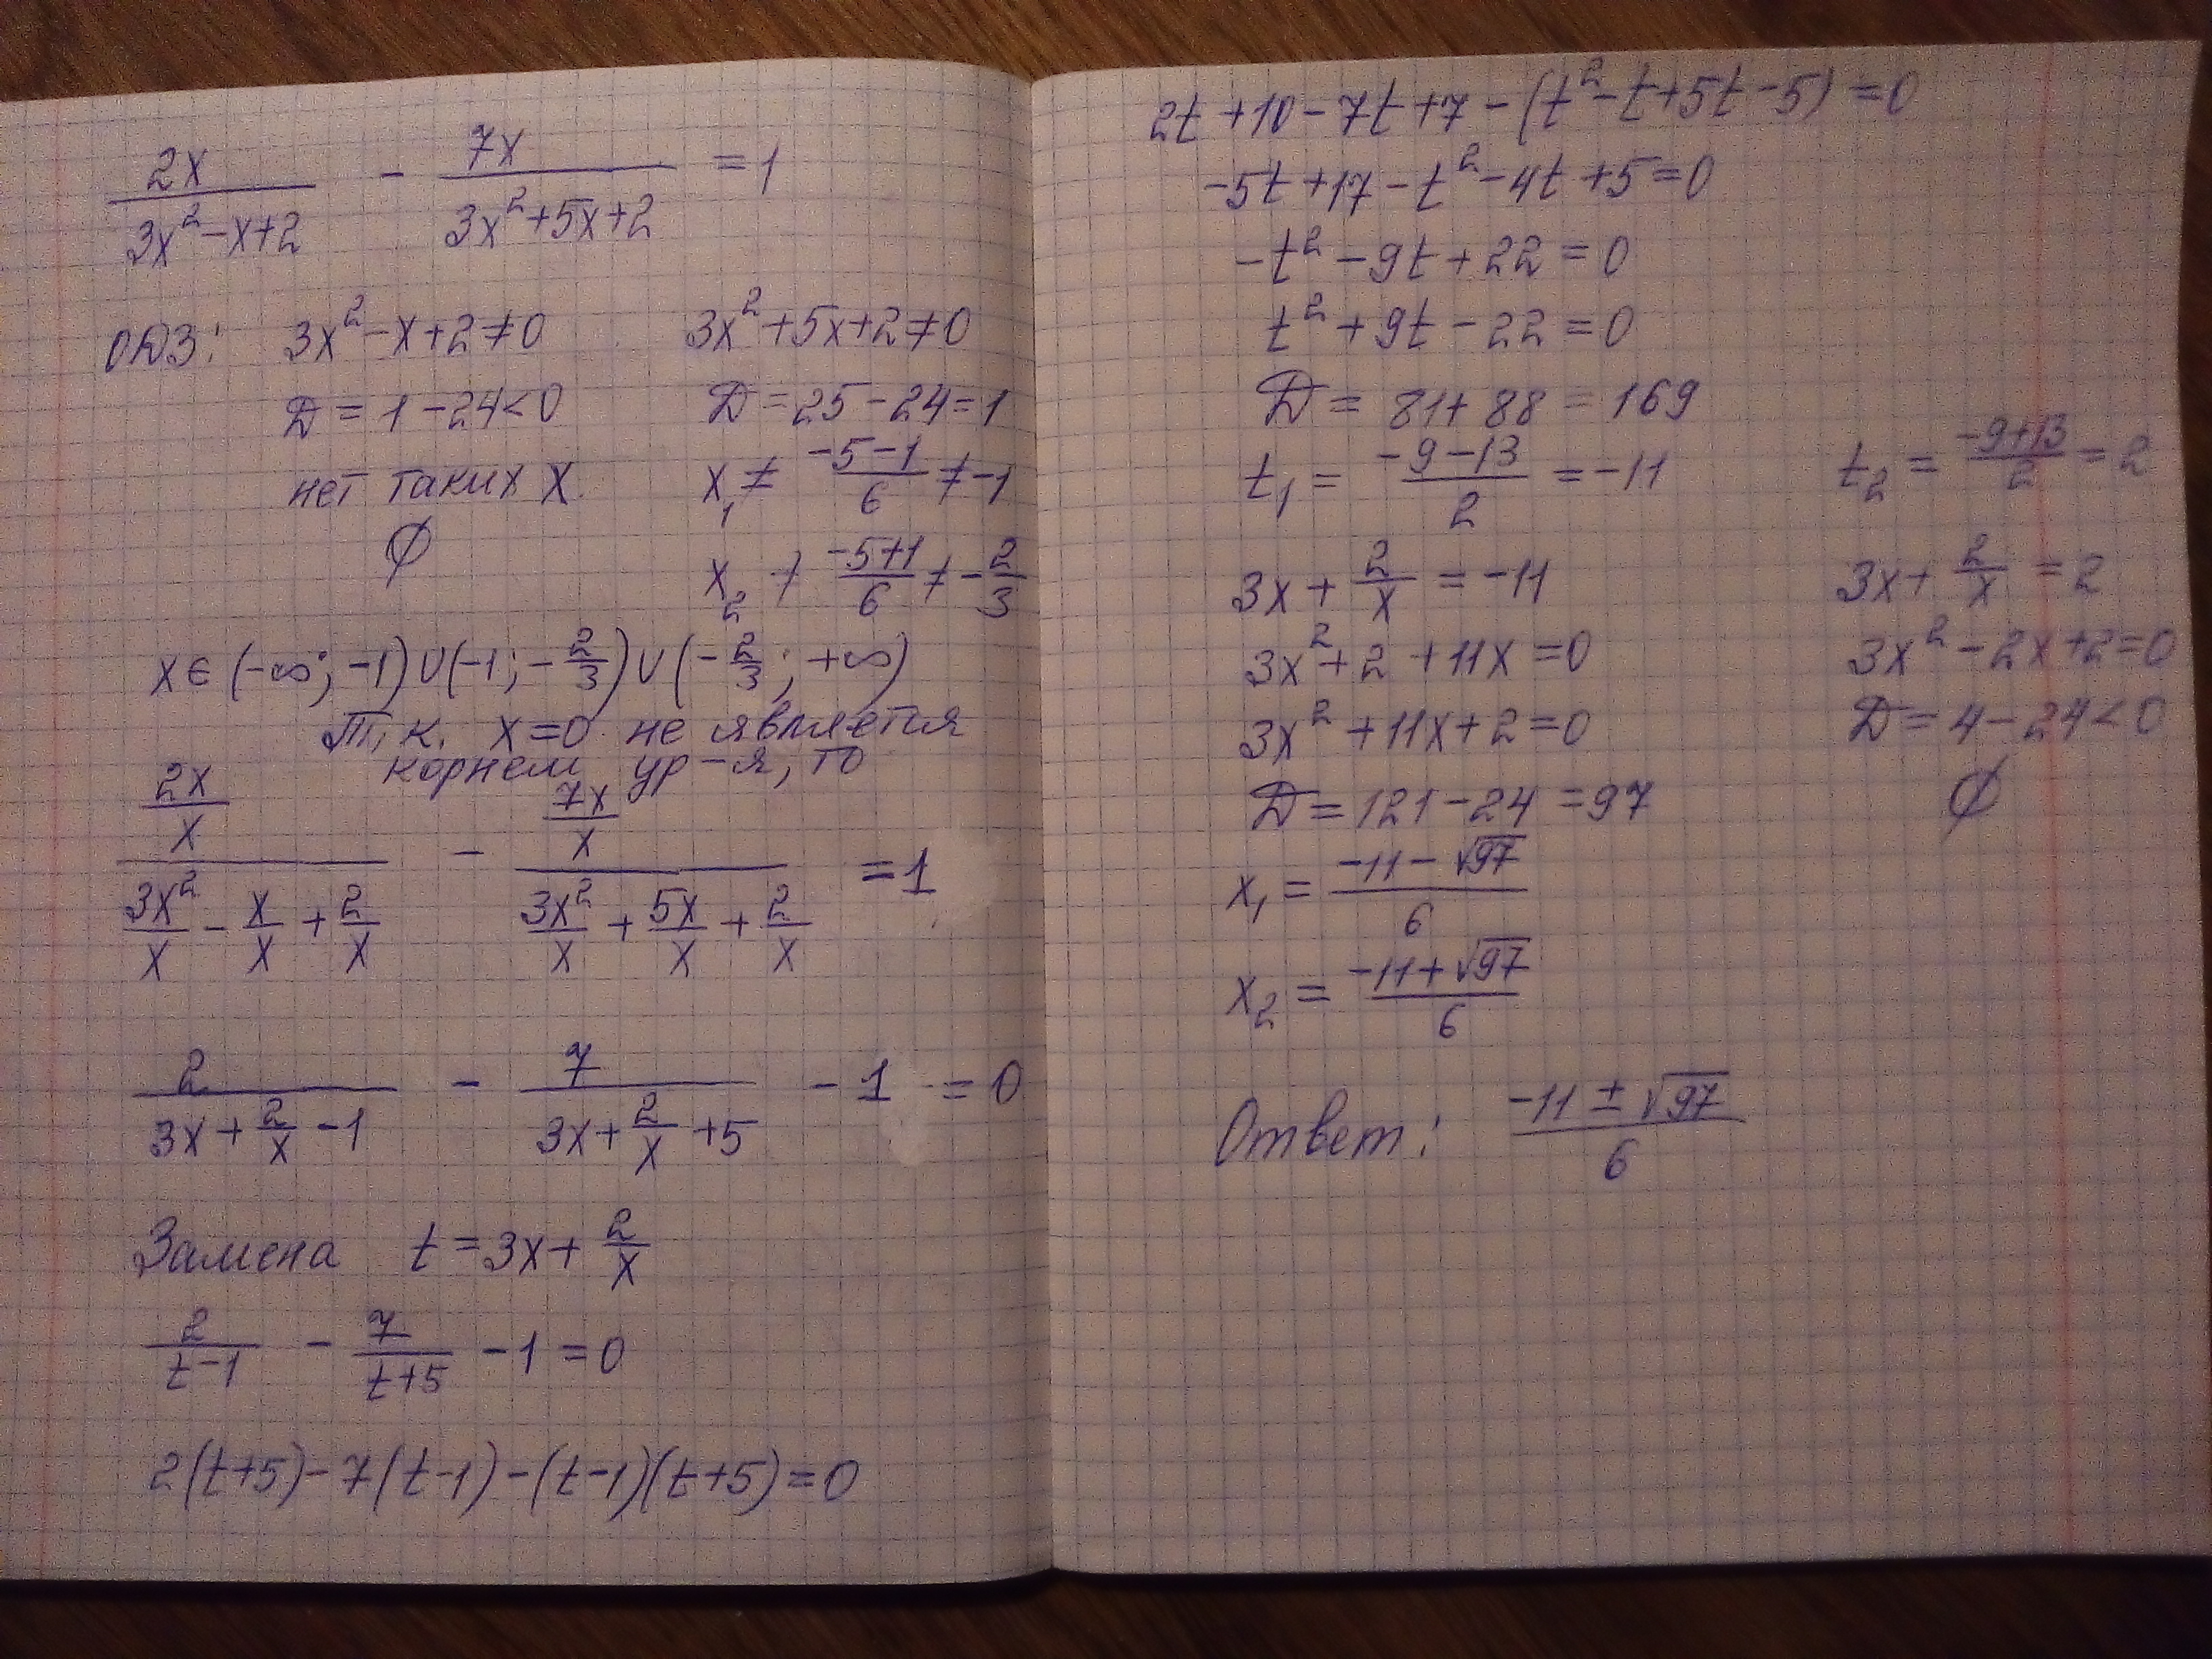 2x/(3x²-x+2) - 7x/(3x²+5x+2) = 1
ОДЗ: 3x²-x+2≠0 3x²+5x+2≠0
D = 1-24<0 D = 25-24=1
нет таких x. x₁ ≠ (-5-1)/6 ≠ -1
∅ x₂ ≠ (-5+1)/6 ≠ -2/3
x∈(-∞; -1)∪(-1; -2/3)∪(-2/3; +∞)
Т.к. x=0 не является
корнем ур-я, то
(2x/x)/(3x²/x - x/x + 2/x) - (7x/x)/(3x²/x + 5x/x + 2/x) = 1
2/(3x+2/x-1) - 7/(3x+2/x+5) - 1 = 0
Замена t=3x+2/x
2/(t-1) - 7/(t+5) - 1 = 0
2(t+5)-7(t-1)-(t-1)(t+5)=0
2t+10-7t+7-(t²-t+5t-5)=0
-5t+17-t²-4t+5=0
-t²-9t+22=0
t²+9t-22=0
D = 81+88 = 169
t₁ = (-9-13)/2 = -11 t₂ = (-9+13)/2 = 2
3x+2/x = -11 3x+2/x = 2
3x²+2+11x=0 3x²-2x+2=0
3x²+11x+2=0 D=4-24<0
D=121-24=97 ∅
x₁ = (-11-√97)/6
x₂ = (-11+√97)/6
Ответ: (-11±√97)/6